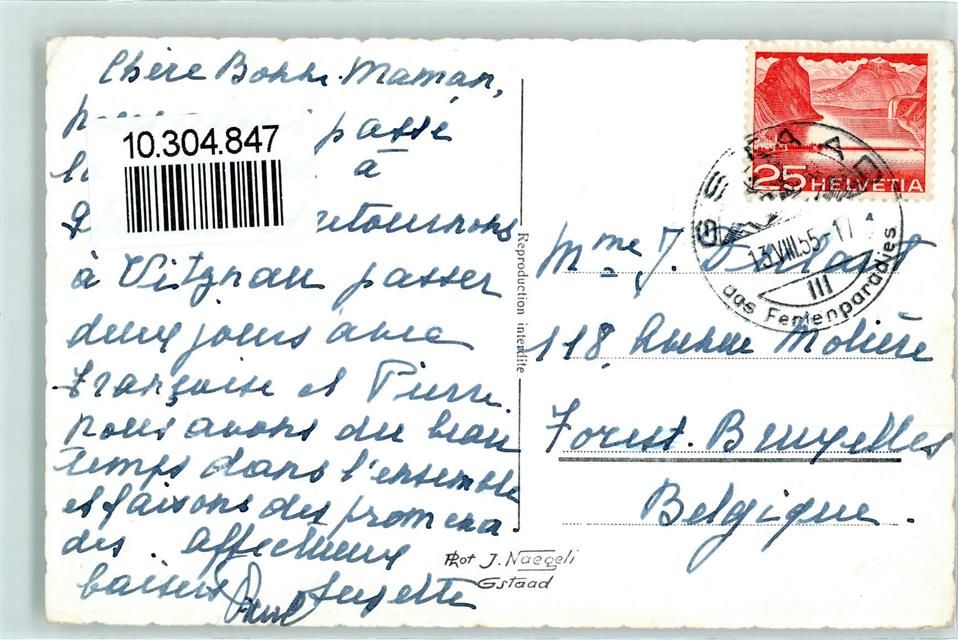 Chère Bonne-Maman,
passé
à
10.304.847
à Vitznau passer
deux jours avec
Françoise et Pierre.
nous avons du beau
temps dans l'ensemble
et faisons des promena
des. Affectueux
baisers Paul Suzette
Reproduction interdite
Phot J. Naegeli
Gstaad
25 HELVETIA
GSTAAD
13.VIII.55-17
III
das Ferienparadies
Mme J.
118, Avenue Molière
Forest. Bruxelles
Belgique.